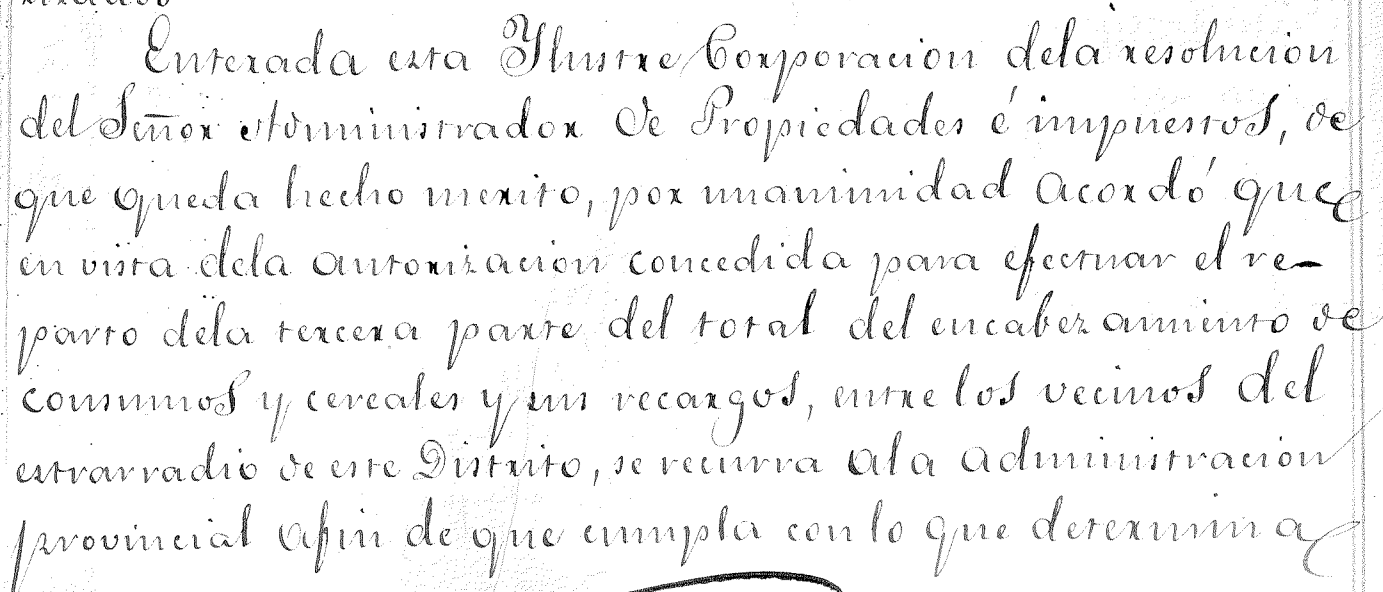 Enterada esta Ylustre Corporacion dela resolucion
del Señor Administrador de Propiedades é impuestos, de
que queda hecho merito, por unanimidad acordó que
en vista dela autorizacion concedida para efectuar el re-
parto dela tercera parte del total del encabezamiento de
consumos y cereales y sus recargos, entre los vecinos del
estrarradio de este Distrito, se recurra ala administracion
provincial afin de que cumpla con lo que determina